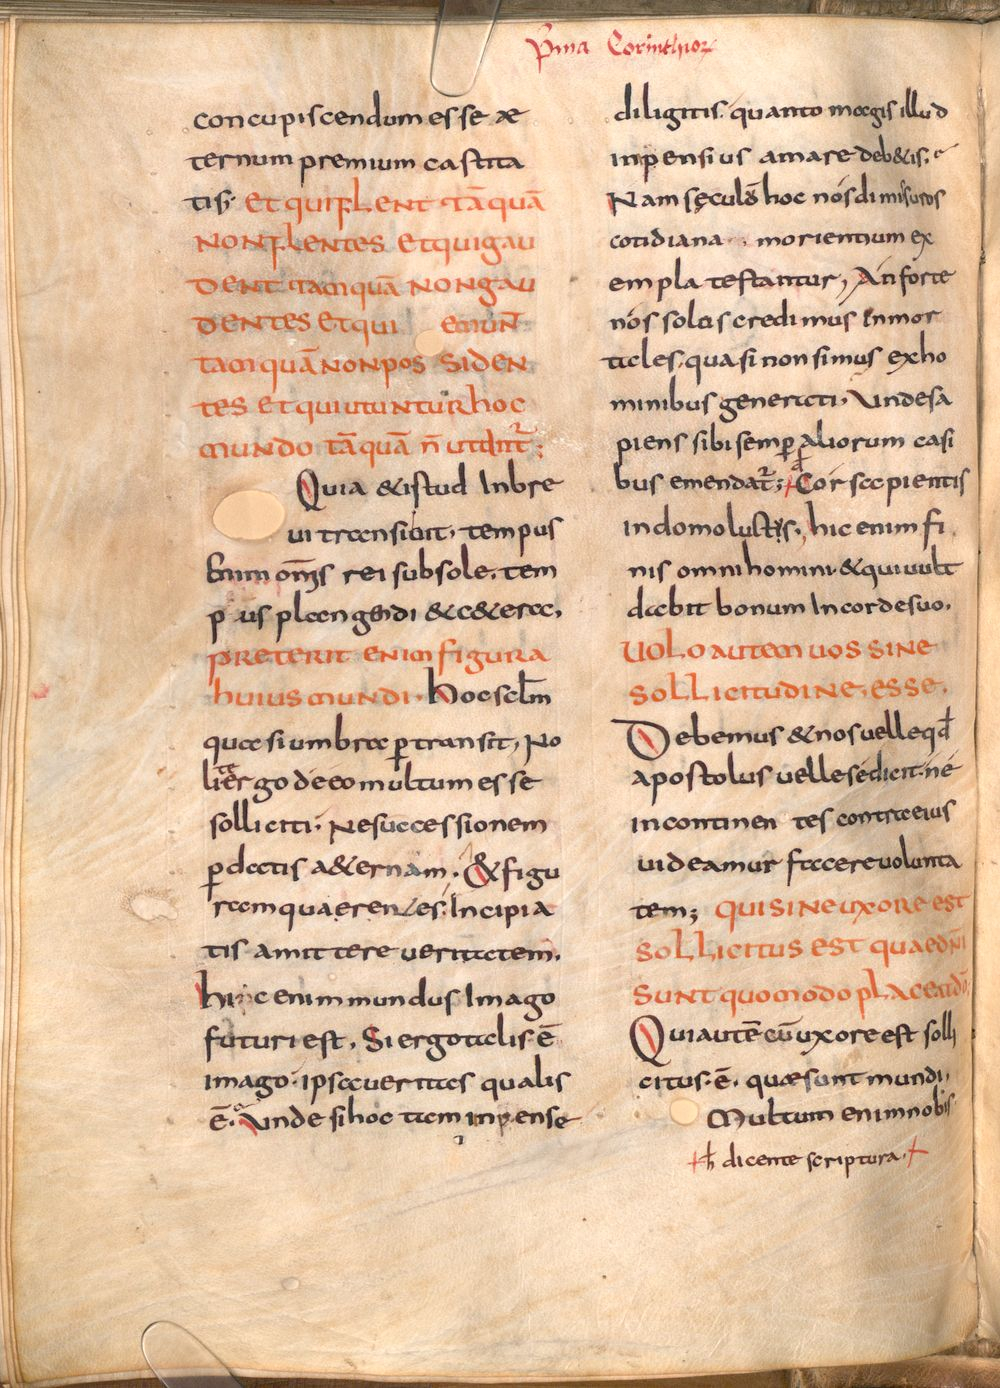 P̄ma Corinthioꝝ
concupiscendum esse æ
ternum premium castita
tis· et qui flent tāquā
non flentes et qui gau
dent tamquā non gau
dentes et qui emun̄t
tamquā non pos siden
tes et qui utuntur hoc
mundo tāquā n̄ utant᷑;
Quia & istud In bre
ui transibit, tempus
Enim om̄s rei sub sole, tem
p us plangendi & c&era,
preterit enim figura
huius mundi· hoc sc̄lm
quasi umbra ꝑtransit, No
li ergo de eo multum esse
solliciti· Ne successionem
ꝑdatis a&ernam, & figu
ram quaerentes, Incipia
tis amittere ueritatem,
hinc enim mundus Imago
futuri est, Si ergo talis ē
imago· ipsa ueritas qualis
ē, Unde si hoc tam inpense
diligitis, quanto magis illud
inpensius amare deb&is,
Nam seculū hoc nós dimisuros
cotidiana morientium ex
empla testantur, An forte
nós solos credimus Inmor
tales, quasi non simus ex ho
minibus generati, Unde sa
piens sibi semꝑ aliorum casi
bus emendat᷑; Cor sapientis
in domo luctus, hic enim fi
nis omni homini· & qui uult
dabit bonum In corde suo,
Uolo autem uos sine
sollicitudine, esse,
Debemus & nos uelle qđ
apostolus uelle se dicit· ne
incontinen tes contra eius
uideamur facere uolunta
tem; qui sine uxore est
sollicitus est quae dn̄i
sunt quomodo placeat dō,
Qui autē cū uxore est solli
citus· ē, quæ sunt mundi,
Multum enim nobis
ħ dicente scriptura,